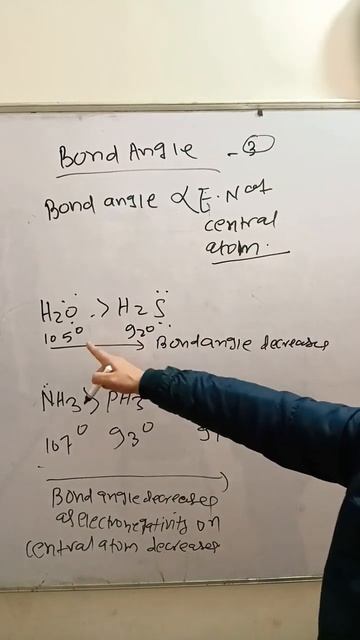 Bond Angle - 3
Bond angle ∝ E.N of
central
atom.
H2O > H2S
105° 92°
Bond angle decreases
NH3 > PH3
107° 93° 91
Bond angle decreases
as electronegativity on
central atom decreases